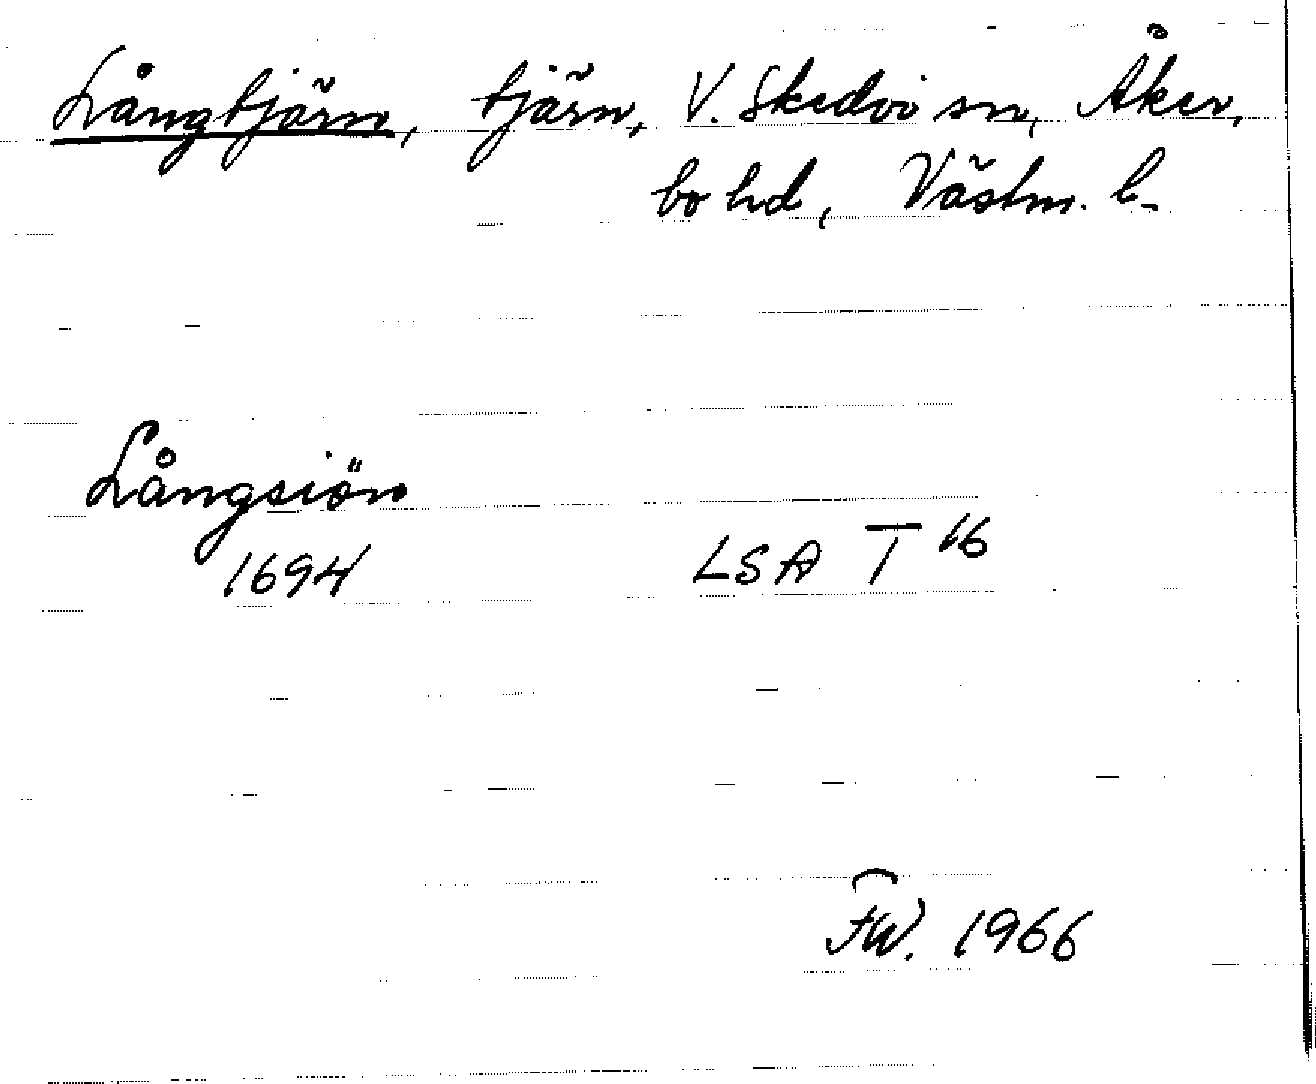 Långtjärn, tjärn, V. Skedvi sn, Åker,
bo hd, Västm. l.
Långsiön
1694 LSA T 16
FW. 1966